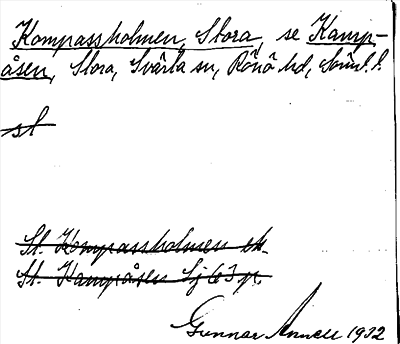 Kompassholmen, Stora, se Kamp-
åsen, Stora, Svärta sn, Rönö hd, Söml. l.
sl
St. Kompassholmen ek.
St. Kampåsen Sj 63 n.
Gunnar Annell 1932